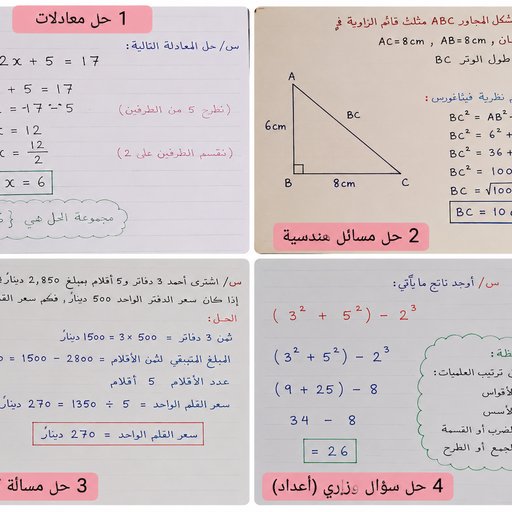 1 حل معادلات
س/ حل المعادلة التالية:
2x + 5 = 17
+ 5 = 17
= 17 - 5 (نطرح 5 من الطرفين)
= 12
= 12/2 (نقسم الطرفين على 2)
x = 6
مجموعة الحل هي {
الشكل المجاور ABC مثلث قائم الزاوية في
AC=8cm , AB=8cm , ان
طول الوتر BC
نظرية فيثاغورس:
A
BC
6cm
B
8cm
C
BC² = AB²
BC² = 6² +
BC² = 36 +
BC² = 100
BC = √100
BC = 10 c
2 حل مسائل هندسية
س/ اشترى أحمد 3 دفاتر و5 أقلام بمبلغ 2,850
إذا كان سعر الدفتر الواحد 500 دينار, فكم سعر القلم
الحل:
ثمن 3 دفاتر = 500 × 3 = 1500 دينار
المبلغ المتبقي لثمن الأقلام = 2800 - 1500 =
عدد الأقلام 5 أقلام
سعر القلم الواحد = 1350 ÷ 5 = 270 دينار
سعر القلم الواحد = 270 دينار
3 حل مسألة
س/ أوجد ناتج ما يأتي:
( 3² + 5² ) - 2³
( 3² + 5² ) - 2³
( 9 + 25 ) - 8
34 - 8
= 26
ظة:
ترتيب العلميات:
الأقواس
الأسس
الضرب أو القسمة
الجمع أو الطرح
4 حل سؤال وزاري (أعداد)